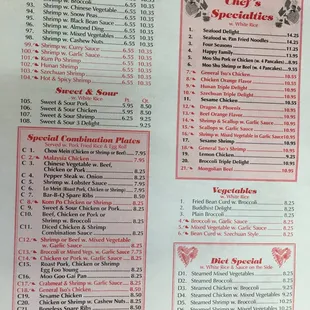 w. Broccoli 6.55 10.35
93. Shrimp w. Chinese Vegetable 6.55 10.35
94. Shrimp w. Snow Peas 6.55 10.35
95. Shrimp w. Black Bean 6.55 10.35
96. Shrimp w. Almond Ding 6.55 10.35
97. Shrimp w. Mixed Vegetables 6.55 10.35
98. Shrimp w. Cashew Nuts 6.55 10.35
99. Shrimp w. Curry Sauce 6.55 10.35
100. Shrimp w. Garlic Sauce 6.55 10.35
101. Kung Po Shrimp 6.55 10.35
102. Hunan Shrimp 6.55 10.35
103. Szechuan Shrimp 6.55 10.35
104. Hot & Spicy Shrimp 6.55 10.35
Sweet & Sour
w. White Rice
Pt. Qt.
105. Sweet & Sour Pork
106. Sweet & Sour Chicken
107. Sweet & Sour Shrimp
108. Sweet & Sour 3 Delight
Special Combination Plates
Served w. Pork Fried Rice & Egg Roll
C 1. Chow Mein (Chicken or Shrimp or Beef) 7.95
C 2. Malaysia Chicken 7.95
C 3. Chinese Vegetable w. Beef,
Chicken or Pork 8.25
C 4. Pepper Steak w. Onion 8.25
C 5. Shrimp w. Lobster Sauce 8.25
C 6. Lo Mein (Roast Pork, Chicken or Shrimp) 8.25
C 7. Bar-B-Q Spare Ribs 8.25
C 8. Kung Po Chicken or Shrimp 8.25
C 9. Sweet & Sour Chicken or Pork 8.25
C10. Beef, Chicken or Pork or
Shrimp w. Broccoli 8.25
C11. Diced Chicken & Shrimp
Combination Sauce 8.25
C12. Shrimp or Beef w. Mixed Vegetable
w. Garlic Sauce 8.25
C13. Broccoli or Mixed Vegs. w. Garlic Sauce 7.75
C14. Chicken or Pork w. Garlic Sauce 8.25
C15. Roast Pork, Chicken or Shrimp
Egg Foo Young 8.25
C16. Moo Goo Gai Pan 8.25
C17. Crabmeat & Shrimp w. Garlic Sauce 8.25
C18. General Tso's Chicken 8.25
C19. Sesame Chicken 8.25
C20. Chicken or Shrimp w. Cashew Nuts 8.25
C21. Boneless Spare Ribs
Chef's
Specialties
w. White Rice
1. Seafood Delight 14.25
2. Seafood w. Pan Fried Noodles
3. Four Seasons
4. Happy Family
5. Moo-Shu Pork or Chicken (w. 4 Pancakes)
6. Moo Shu Shrimp or Beef (w. 4 Pancakes)
7. General Tso's Chicken 10.55
8. Orange Flavor Chicken 10.55
9. Hunan Triple Delight
10. Szechuan Triple Delight
11. Sesame Chicken
12. Dragon & Phoenix
13. Beef Orange Flavor
14. Shrimp & Scallop w. Garlic Sauce
15. Scallops w. Garlic Sauce
16. Shrimp w. Mixed Vegetable in Garlic Sauce
18. General Tso's Shrimp
19. Lemon Chicken
20. Broccoli Triple Delight
21. Mongolian Beef
Vegetables
w. White Rice
1. Fried Bean Curd w. Broccoli 8.25
2. Buddhist Delight 8.25
3. Plain Broccoli 8.25
4. Broccoli w. Garlic Sauce 8.25
5. Mixed Vegetables w. Garlic Sauce 8.25
6. Bean Curd w. Szechuan Style 8.25
Diet Special
w. White Rice & Sauce on the Side
D1. Steamed Mixed Vegetables 8.25
D2. Steamed Chicken w. Broccoli
D3. Steamed Shrimp w. Broccoli
D4. Steamed Chicken w. Mixed Vegetables
D5. Steamed Shrimp w. Mixed Vegetables